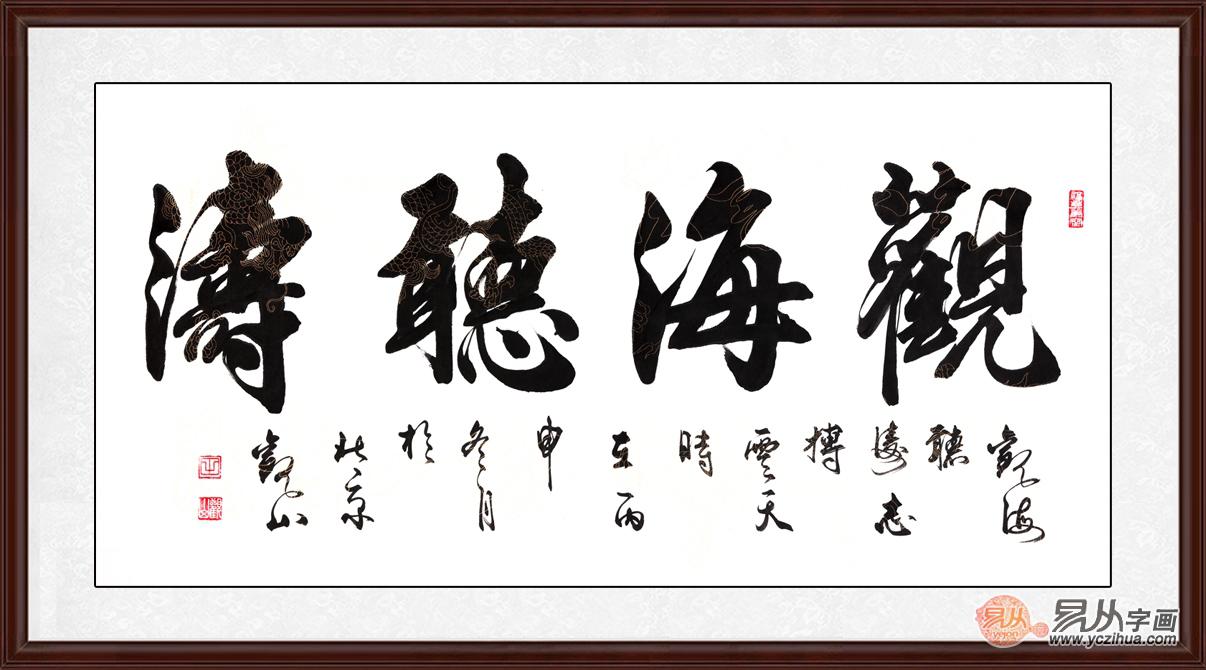 觀海聽濤
觀海
聽
濤志
搏
雲天
時
在丙
申
冬月
於
北京
觀山
易从
yejon
易从字画
www.yczihua.com